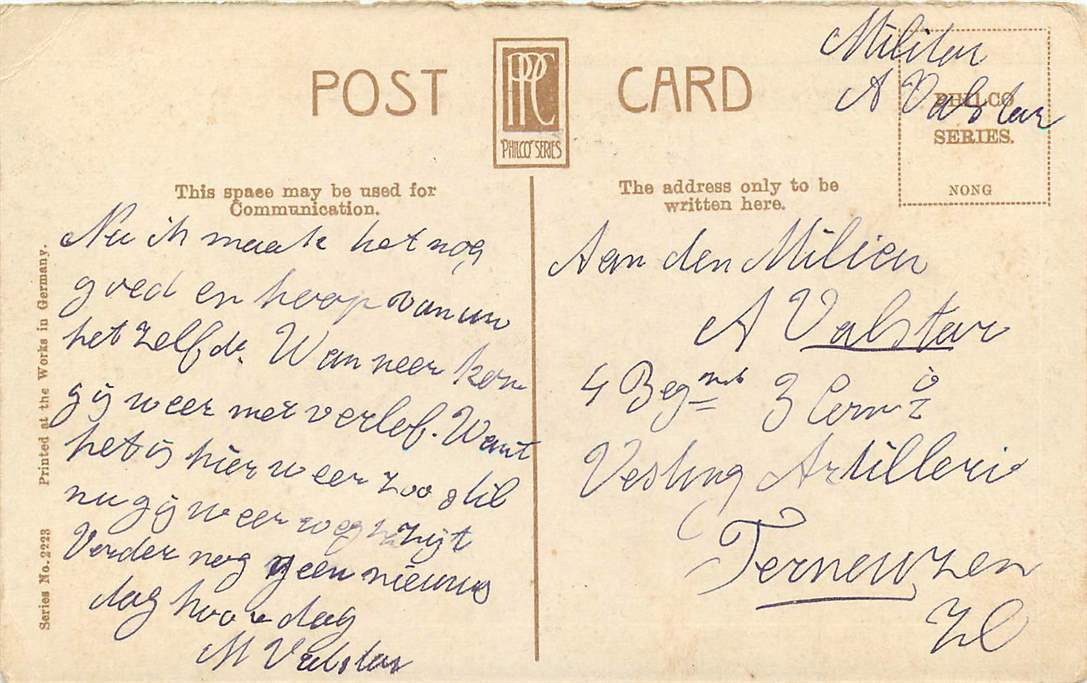 Militair
A Valstar
POST CARD
PPC
"PHILCO" SERIES
PHILCO
SERIES.
NONG
This space may be used for
Communication.
The address only to be
written here.
Printed at the Works in Germany.
Series No. 2223
Nu ik maak het nog
goed en hoop van uw
het zelfde. Wanneer kom
gij weer met verlof. Want
het is hier weer zoo stil
nu gij weer weg zijt
Verder nog geen nieuws
dag hoor dag
M Valstar
Aan den Milicien
A Valstar
4 Regmnt 3 Comie
Vesting Artillerie
Terneuzen
Zl